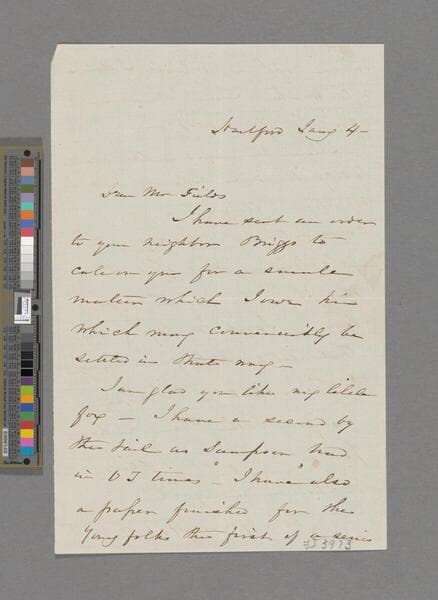 Hartford Jany 4-
Dear Mr Fields
I have sent an order
to your neighbor Briggs to
call on you for a small
matter which I owe him
which may conveniently be
settled in that way-
I am glad you like my little
fox - I have a second by
the tail as Sampson had
in O T times - I have also
a paper finished for the
Young folks the first of a series
FI 3973